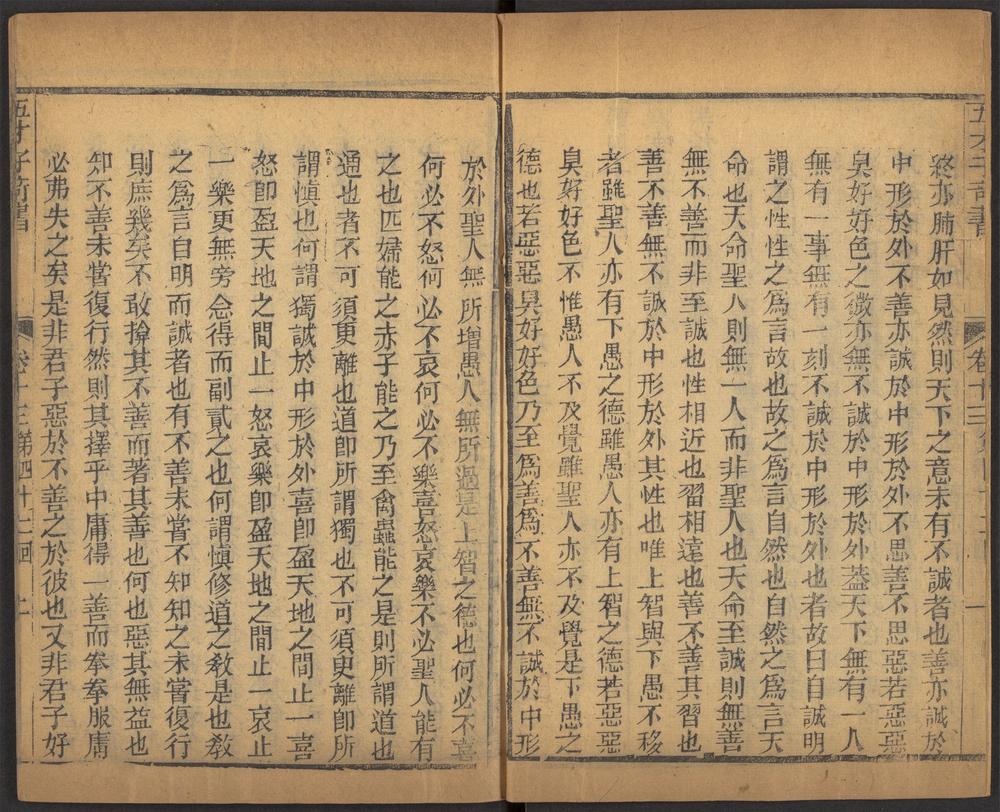 五才子奇書
卷十三
一
終亦肺肝如見然則天下之意未有不誠者也善亦誠於
中形於外不善亦誠於中形於外不思善不思惡若惡惡
臭好好色之微亦無不誠於中形於外蓋天下無有一人
無有一事無有一刻不誠於中形於外也者故曰自誠明
謂之性性之為言故也故之為言自然也自然之為言天
命也天命聖人則無一人而非聖人也天命至誠則無善
無不善而非至誠也性相近也習相遠也善不善其習也
善不善無不誠於中形於外其性也唯上智與下愚不移
者雖聖人亦有下愚之德雖愚人亦有上智之德若惡惡
臭好好色不惟愚人不及覺雖聖人亦不及覺是下愚之
德也若惡惡臭好好色乃至為善為不善無不誠於中形
於外聖人無所增愚人無所過是上智之德也何必不喜
何必不怒何必不哀何必不樂喜怒哀樂不必聖人能有
之也匹婦能之赤子能之乃至禽蟲能之是則所謂道也
通也者不可須更離也道卽所謂獨也不可須更離卽所
謂慎也何謂獨誠於中形於外喜卽盈天地之間止一喜
怒卽盈天地之間止一怒哀樂卽盈天地之間止一哀止
一樂更無旁念得而副貳之也何謂慎修道之教是也教
之為言自明而誠者也有不善未嘗不知知之未嘗復行
則庶幾矣不敢揜其不善而著其善也何也惡其無益也
知不善未嘗復行然則其擇乎中庸得一善而拳拳服膺
必弗失之矣是非君子惡於不善之於彼也又非君子好
五才子奇書
卷十三第四十二回
二